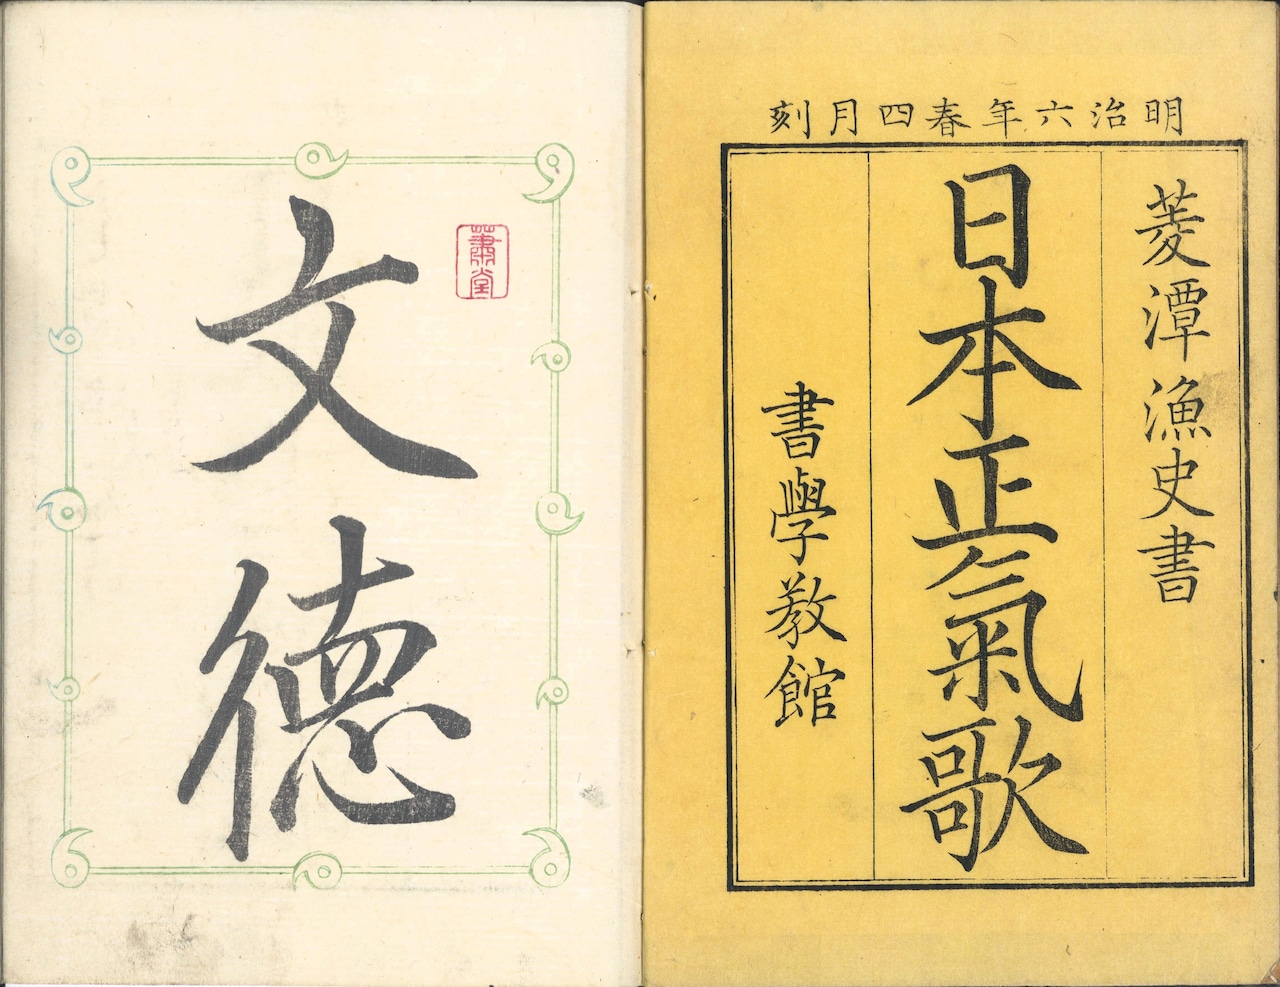 明治六年春四月刻
菱潭漁史書
日本正氣歌
書學教館
蕭堂
文德